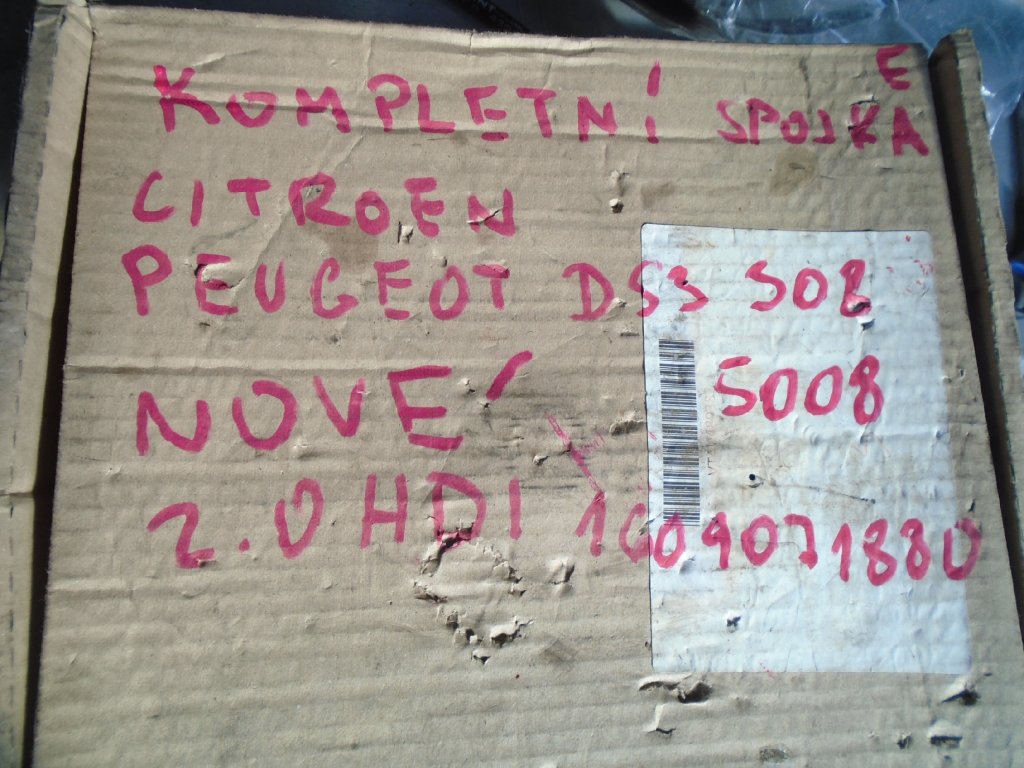 E
KOMPLETNÍ SPOJKA
CITROEN
PEUGEOT DS3 508
5008
NOVÉ
2.0 HDI 1609071880